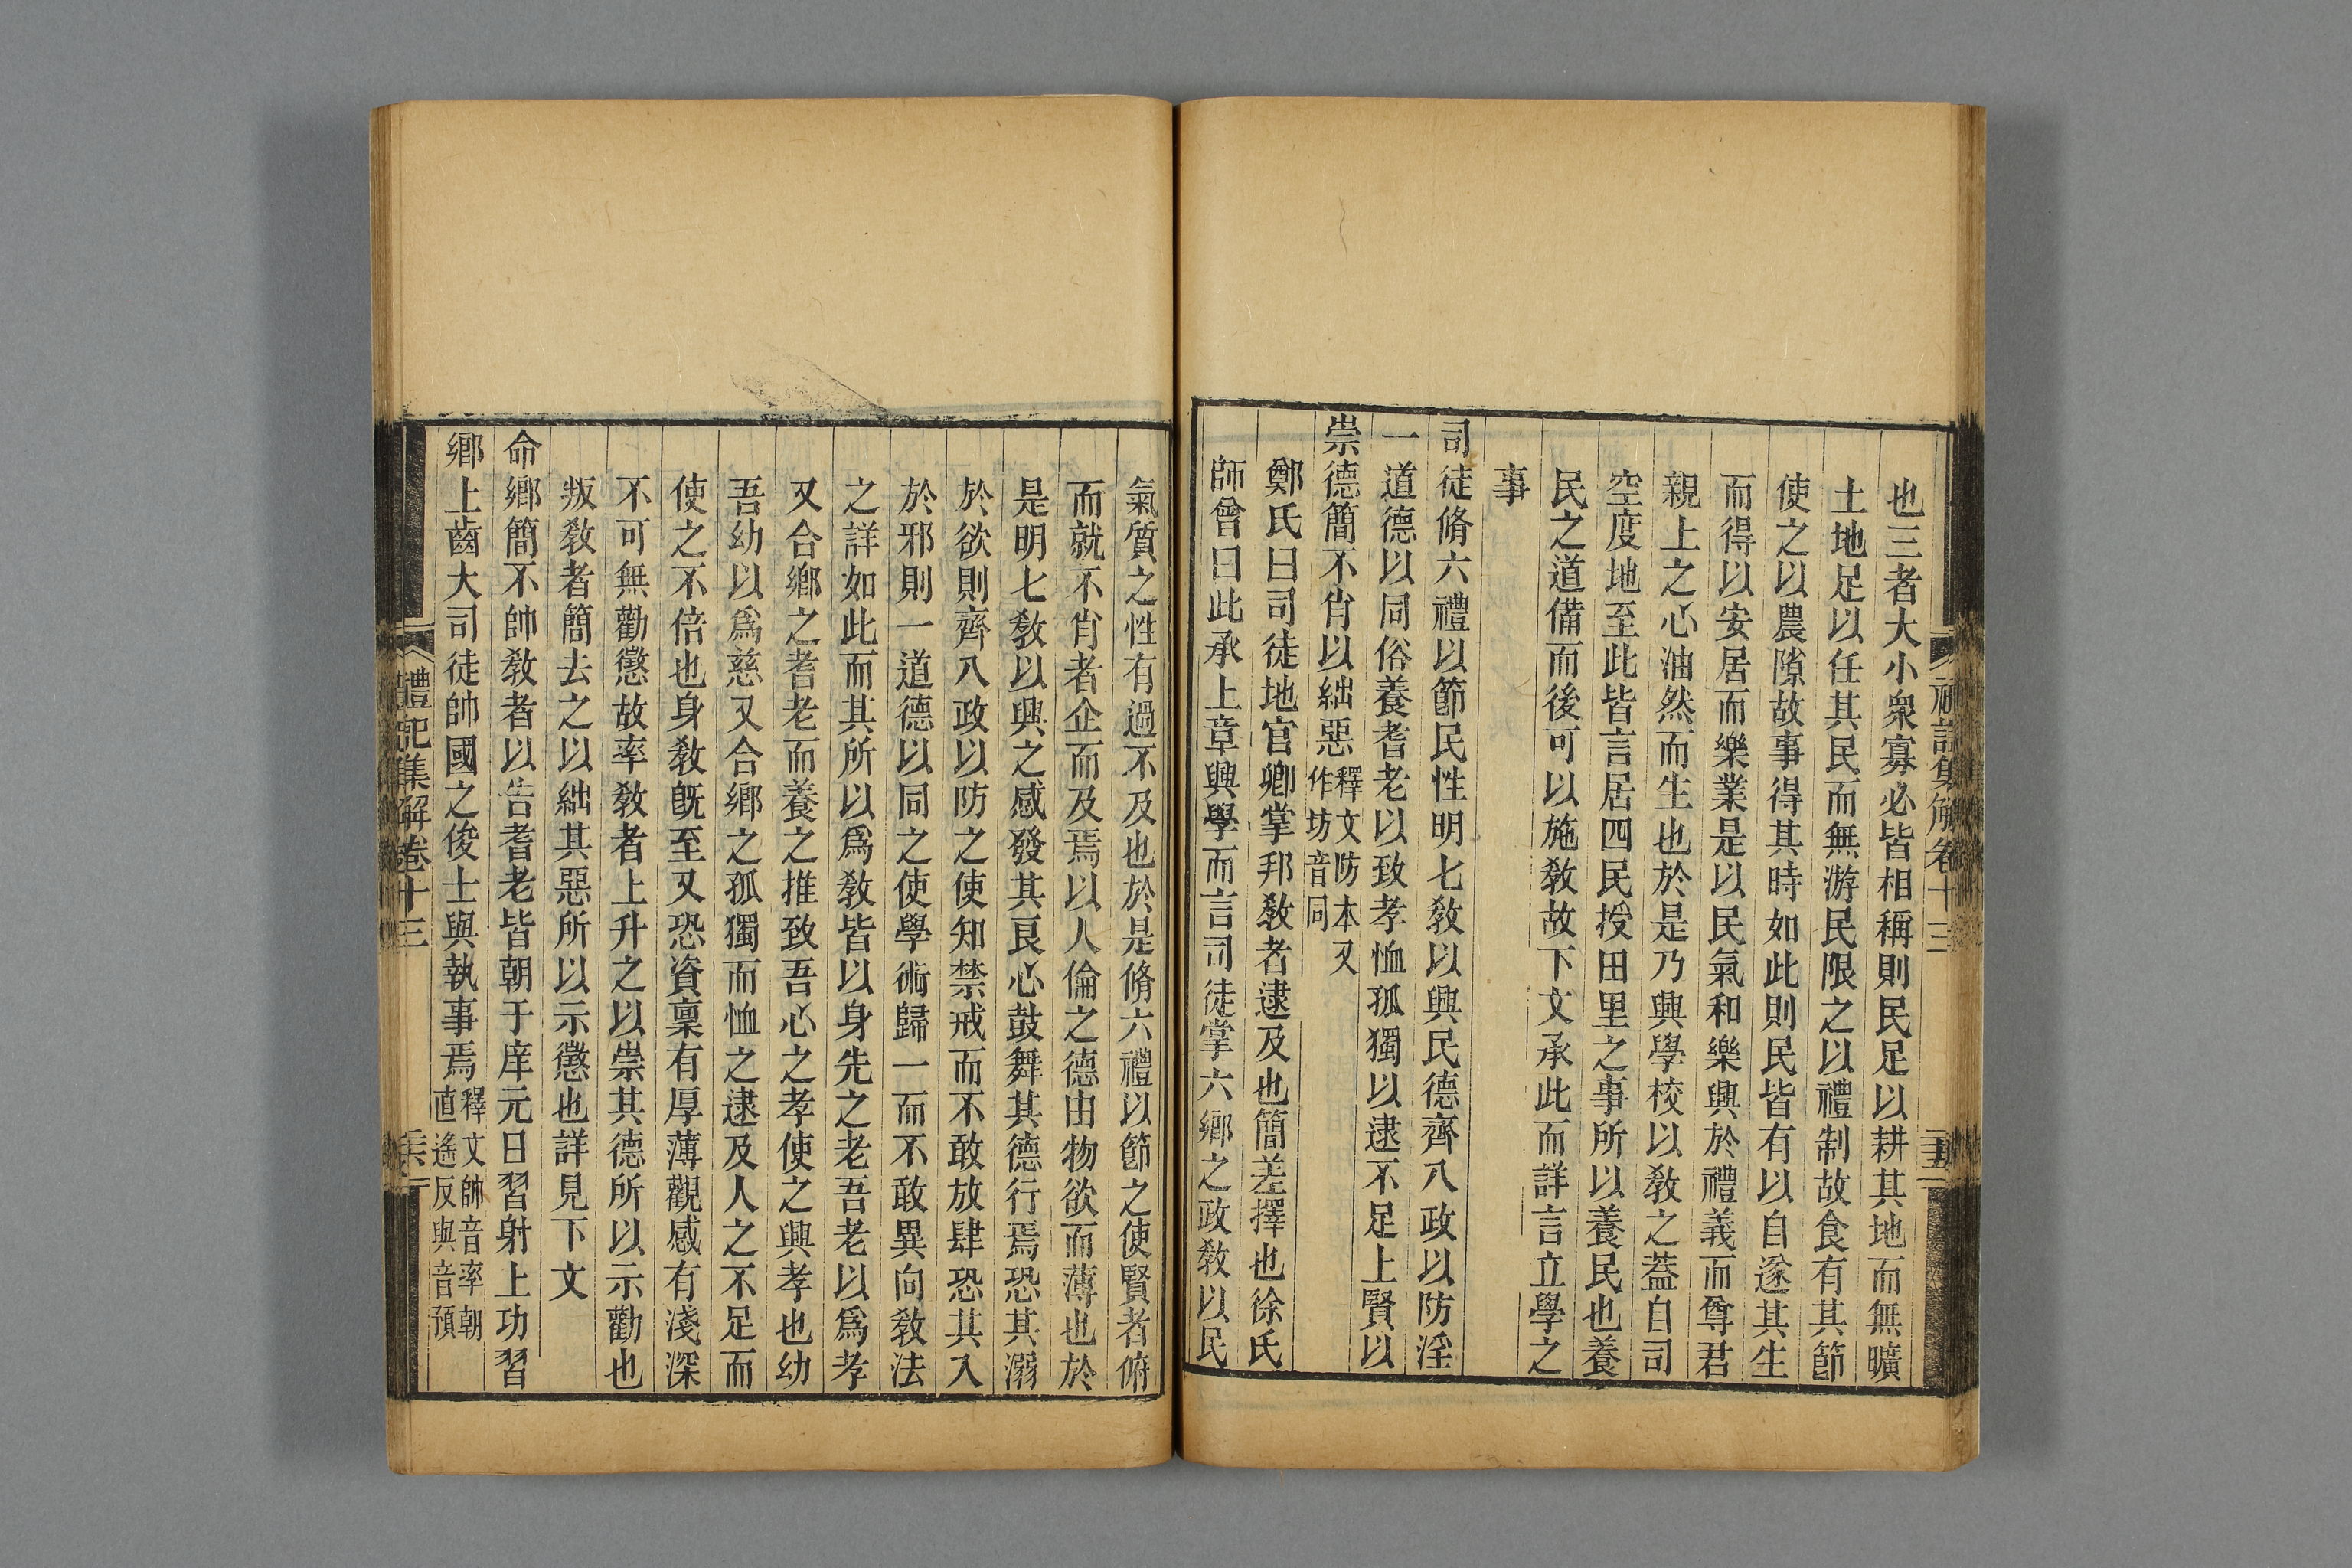 禮記集解卷十三
也三者大小衆寡必皆相稱則民足以耕其地而無曠
土地足以任其民而無游民限之以禮制故食有其節
使之以農隙故事得其時如此則民皆有以自遂其生
而得以安居而樂業是以民氣和樂興於禮義而尊君
親上之心油然而生也於是乃興學校以敎之蓋自司
空度地至此皆言居四民授田里之事所以養民也養
民之道備而後可以施敎故下文承此而詳言立學之
事
司徒脩六禮以節民性明七敎以興民德齊八政以防淫
一道德以同俗養耆老以致孝恤孤獨以逮不足上賢以
崇德簡不肖以絀惡釋文防本又作坊音同
鄭氏曰司徒地官卿掌邦敎者逮及也簡差擇也徐氏
師曾曰此承上章興學而言司徒掌六鄉之政敎以民
氣質之性有過不及也於是脩六禮以節之使賢者俯
而就不肖者企而及焉以人倫之德由物欲而薄也於
是明七敎以興之感發其良心鼓舞其德行焉恐其溺
於欲則齊八政以防之使知禁戒而不敢放肆恐其入
於邪則一道德以同之使學術歸一而不敢異向敎法
之詳如此而其所以爲敎皆以身先之老吾老以爲孝
又合鄉之耆老而養之推致吾心之孝使之興孝也幼
吾幼以爲慈又合鄉之孤獨而恤之逮及人之不足而
使之不倍也身敎旣至又恐資稟有厚薄觀感有淺深
不可無勸懲故率敎者上升之以崇其德所以示勸也
叛敎者簡去之以絀其惡所以示懲也詳見下文
命鄉簡不帥敎者以告耆老皆朝于庠元日習射上功習
鄉上齒大司徒帥國之俊士與執事焉釋文帥音率朝直遙反與音預
禮記集解卷十三